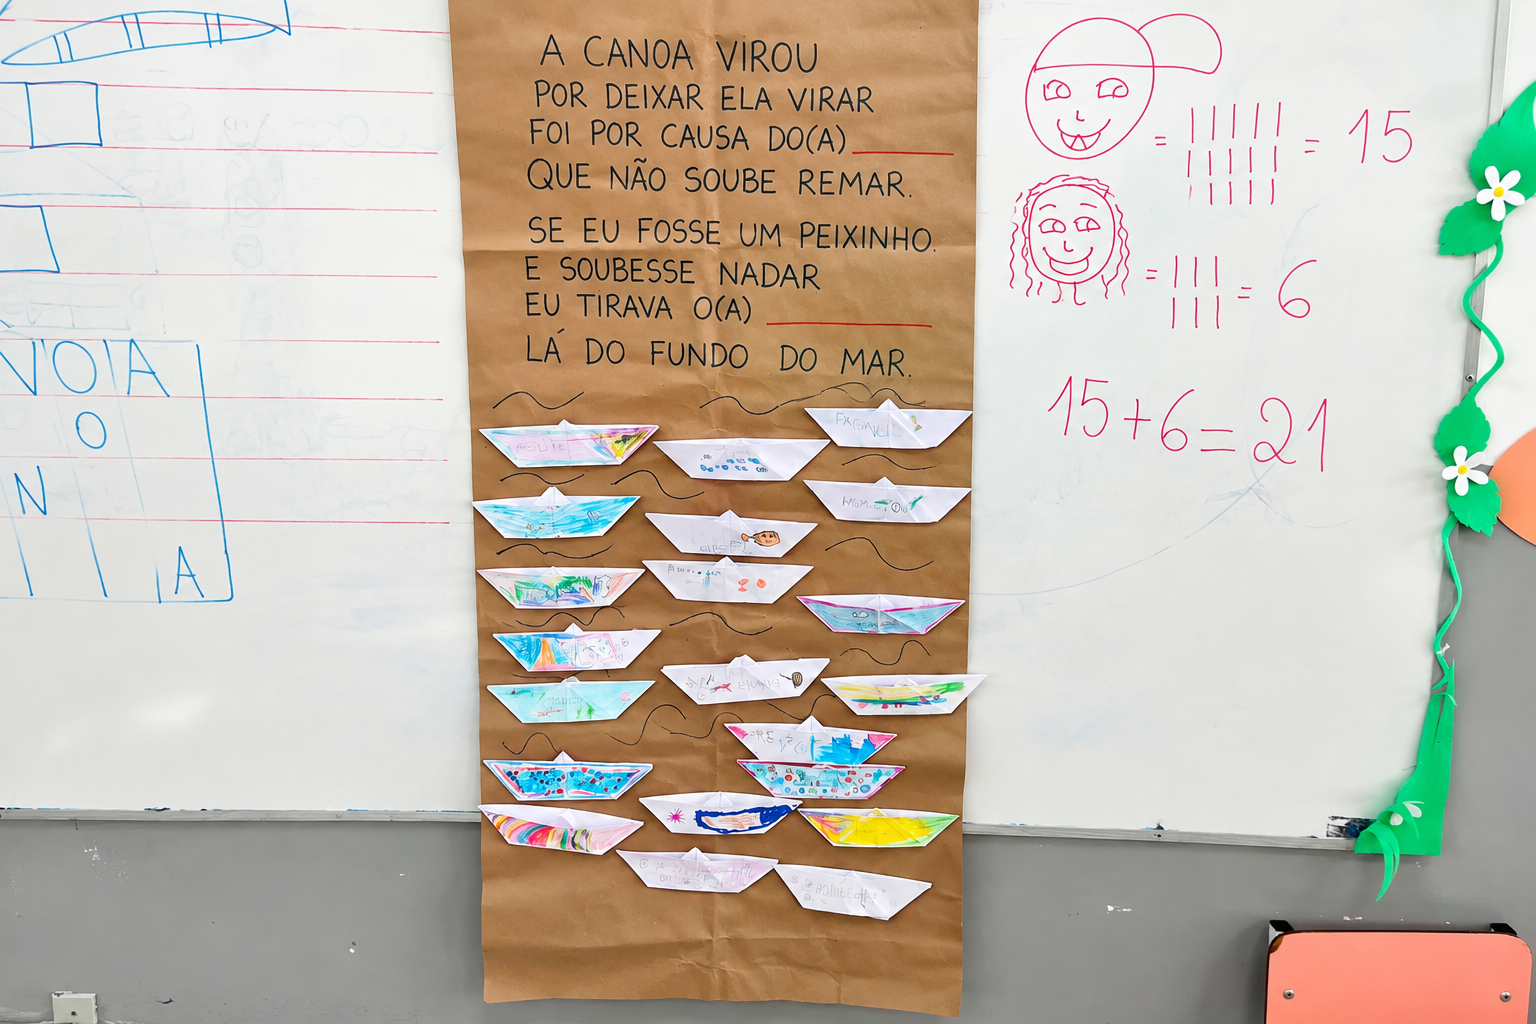 A CANOA VIROU
POR DEIXAR ELA VIRAR
FOI POR CAUSA DO(A)
QUE NÃO SOUBE REMAR.
SE EU FOSSE UM PEIXINHO.
E SOUBESSE NADAR
EU TIRAVA O(A)
LÁ DO FUNDO DO MAR.
= = 15
= = 6
15+6=21
VOIA
O
N
A